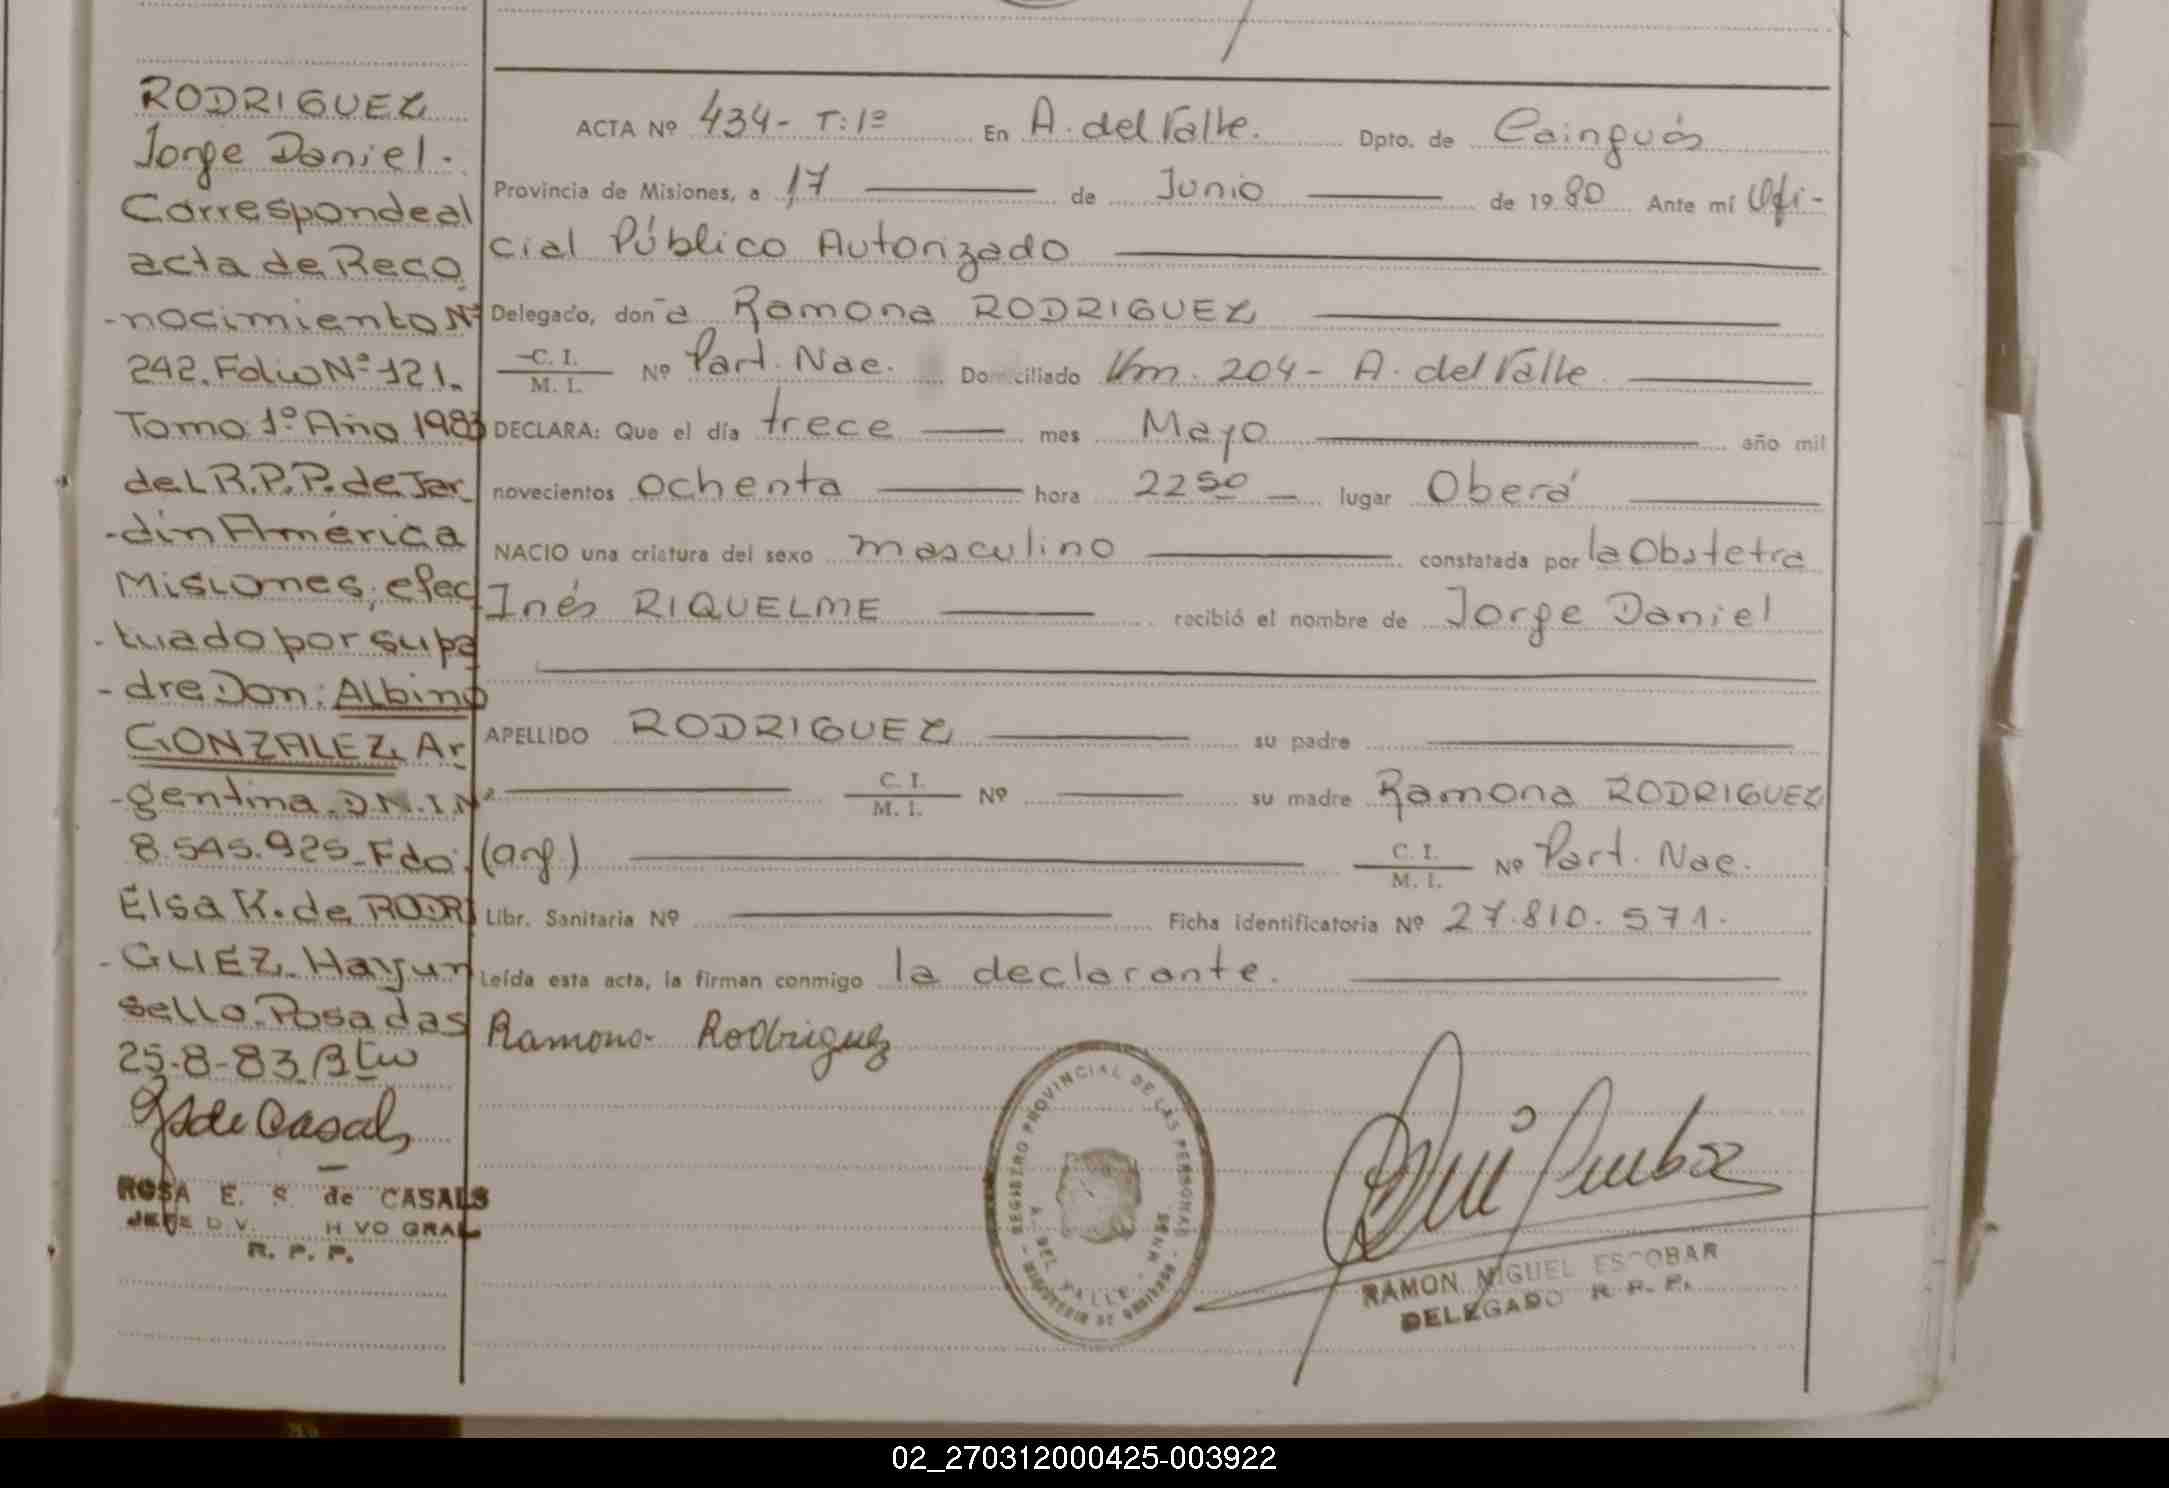 RODRIGUEZ
Jorge Daniel.
Corresponde al
acta de Reco
-nocimiento Nº
242. Folio Nº 121.
Tomo 1º Año 1983
del R.P.P. de Jar
-din América
Misiones, efec
-tuado por su pa
-dre Don: Albino
GONZALEZ, Ar
-gentina. D.N.I. Nº
8.545.925. Fdo:
Elsa K. de RODRI
-GUEZ. Hay un
sello. Posadas
25-8-83
ROSA E. S. de CASALS
JEFE DIV. H VO GRAL
R. P. P.
ACTA Nº 434- T: 1º En A. del Valle. Dpto. de Cainguás
Provincia de Misiones, a 17 de Junio de 1980 Ante mí Ofi-
cial Público Autorizado
Delegado, don~a Ramona RODRIGUEZ
C. I. / M. I. Nº Part. Nac. Domiciliado Km. 204- A. del Valle
DECLARA: Que el día trece mes Mayo año mil
novecientos ochenta hora 22 50 lugar Oberá
NACIO una criatura del sexo masculino constatada por la Obstetra
Inés RIQUELME recibió el nombre de Jorge Daniel
APELLIDO RODRIGUEZ su padre
C. I. / M. I. Nº su madre Ramona RODRIGUEZ
(arg.) C. I. / M. I. Nº Part. Nac.
Libr. Sanitaria Nº Ficha identificatoria Nº 27.810.571.
Leída esta acta, la firman conmigo la declarante.
Ramona Rodriguez
REGISTRO PROVINCIAL DE LAS PERSONAS
A. DEL VALLE
RAMON MIGUEL ESCOBAR
DELEGADO R. P. P.
02_270312000425-003922